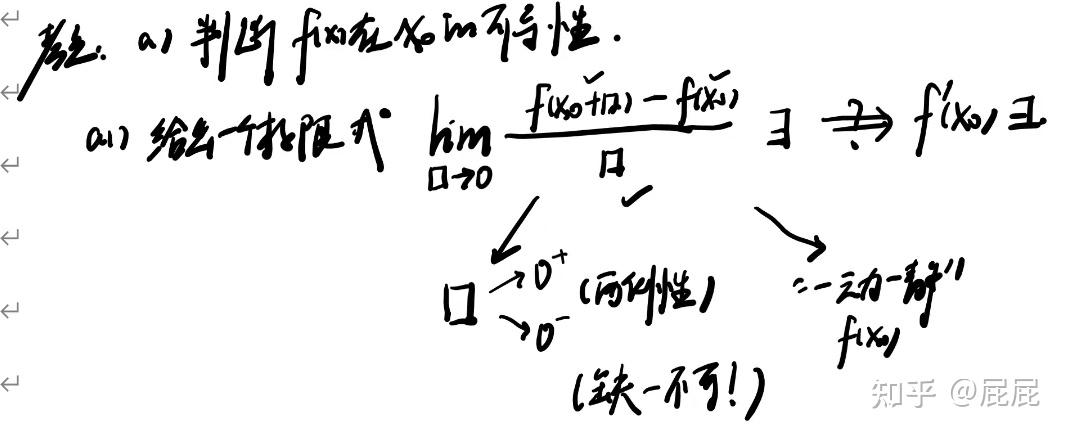 考查: a) 判断 f(x)在x₀的可导性.
a1) 给出一个极限式 lim □→0 f(x₀+□) - f(x₀) / □ ∃ ⇒? f'(x₀) ∃.
□ → 0⁺ → 0⁻ (两侧性) "一动一静"
f(x₀)
(缺一不可!)
知乎 @屁屁